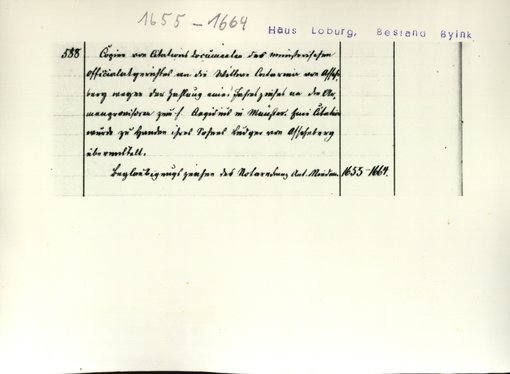 1655 - 1664
Haus Loburg, Bestand Byink
588
Copien von Citationsdocumenten des münsterischen
Officialatgerichtes an die Wittwe Catarina von Assche-
berg wegen der Zahlung einer Jahrespacht an die Ar-
menprovisoren zum h. Aegidius in Münster. Eine Citation
wurde zu Handen ihres Sohnes Rutger von Asscheberg
übermittelt.
Beglaubigungszeichen des Notars Ant.
1655-1664.